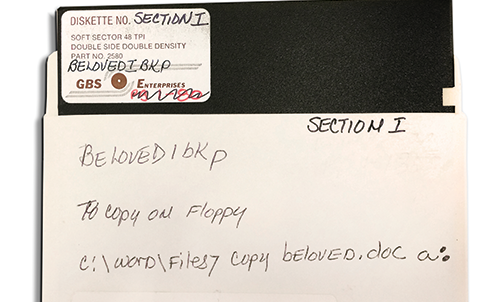 DISKETTE NO. SECTION I
SOFT SECTOR 48 TPI
DOUBLE SIDE DOUBLE DENSITY
PART NO. 2580
BELOVED I BKP
GBS ENTERPRISES
SECTION I
BELOVED1bKP
To Copy on Floppy
c:\word\files7 copy beloved.doc a: